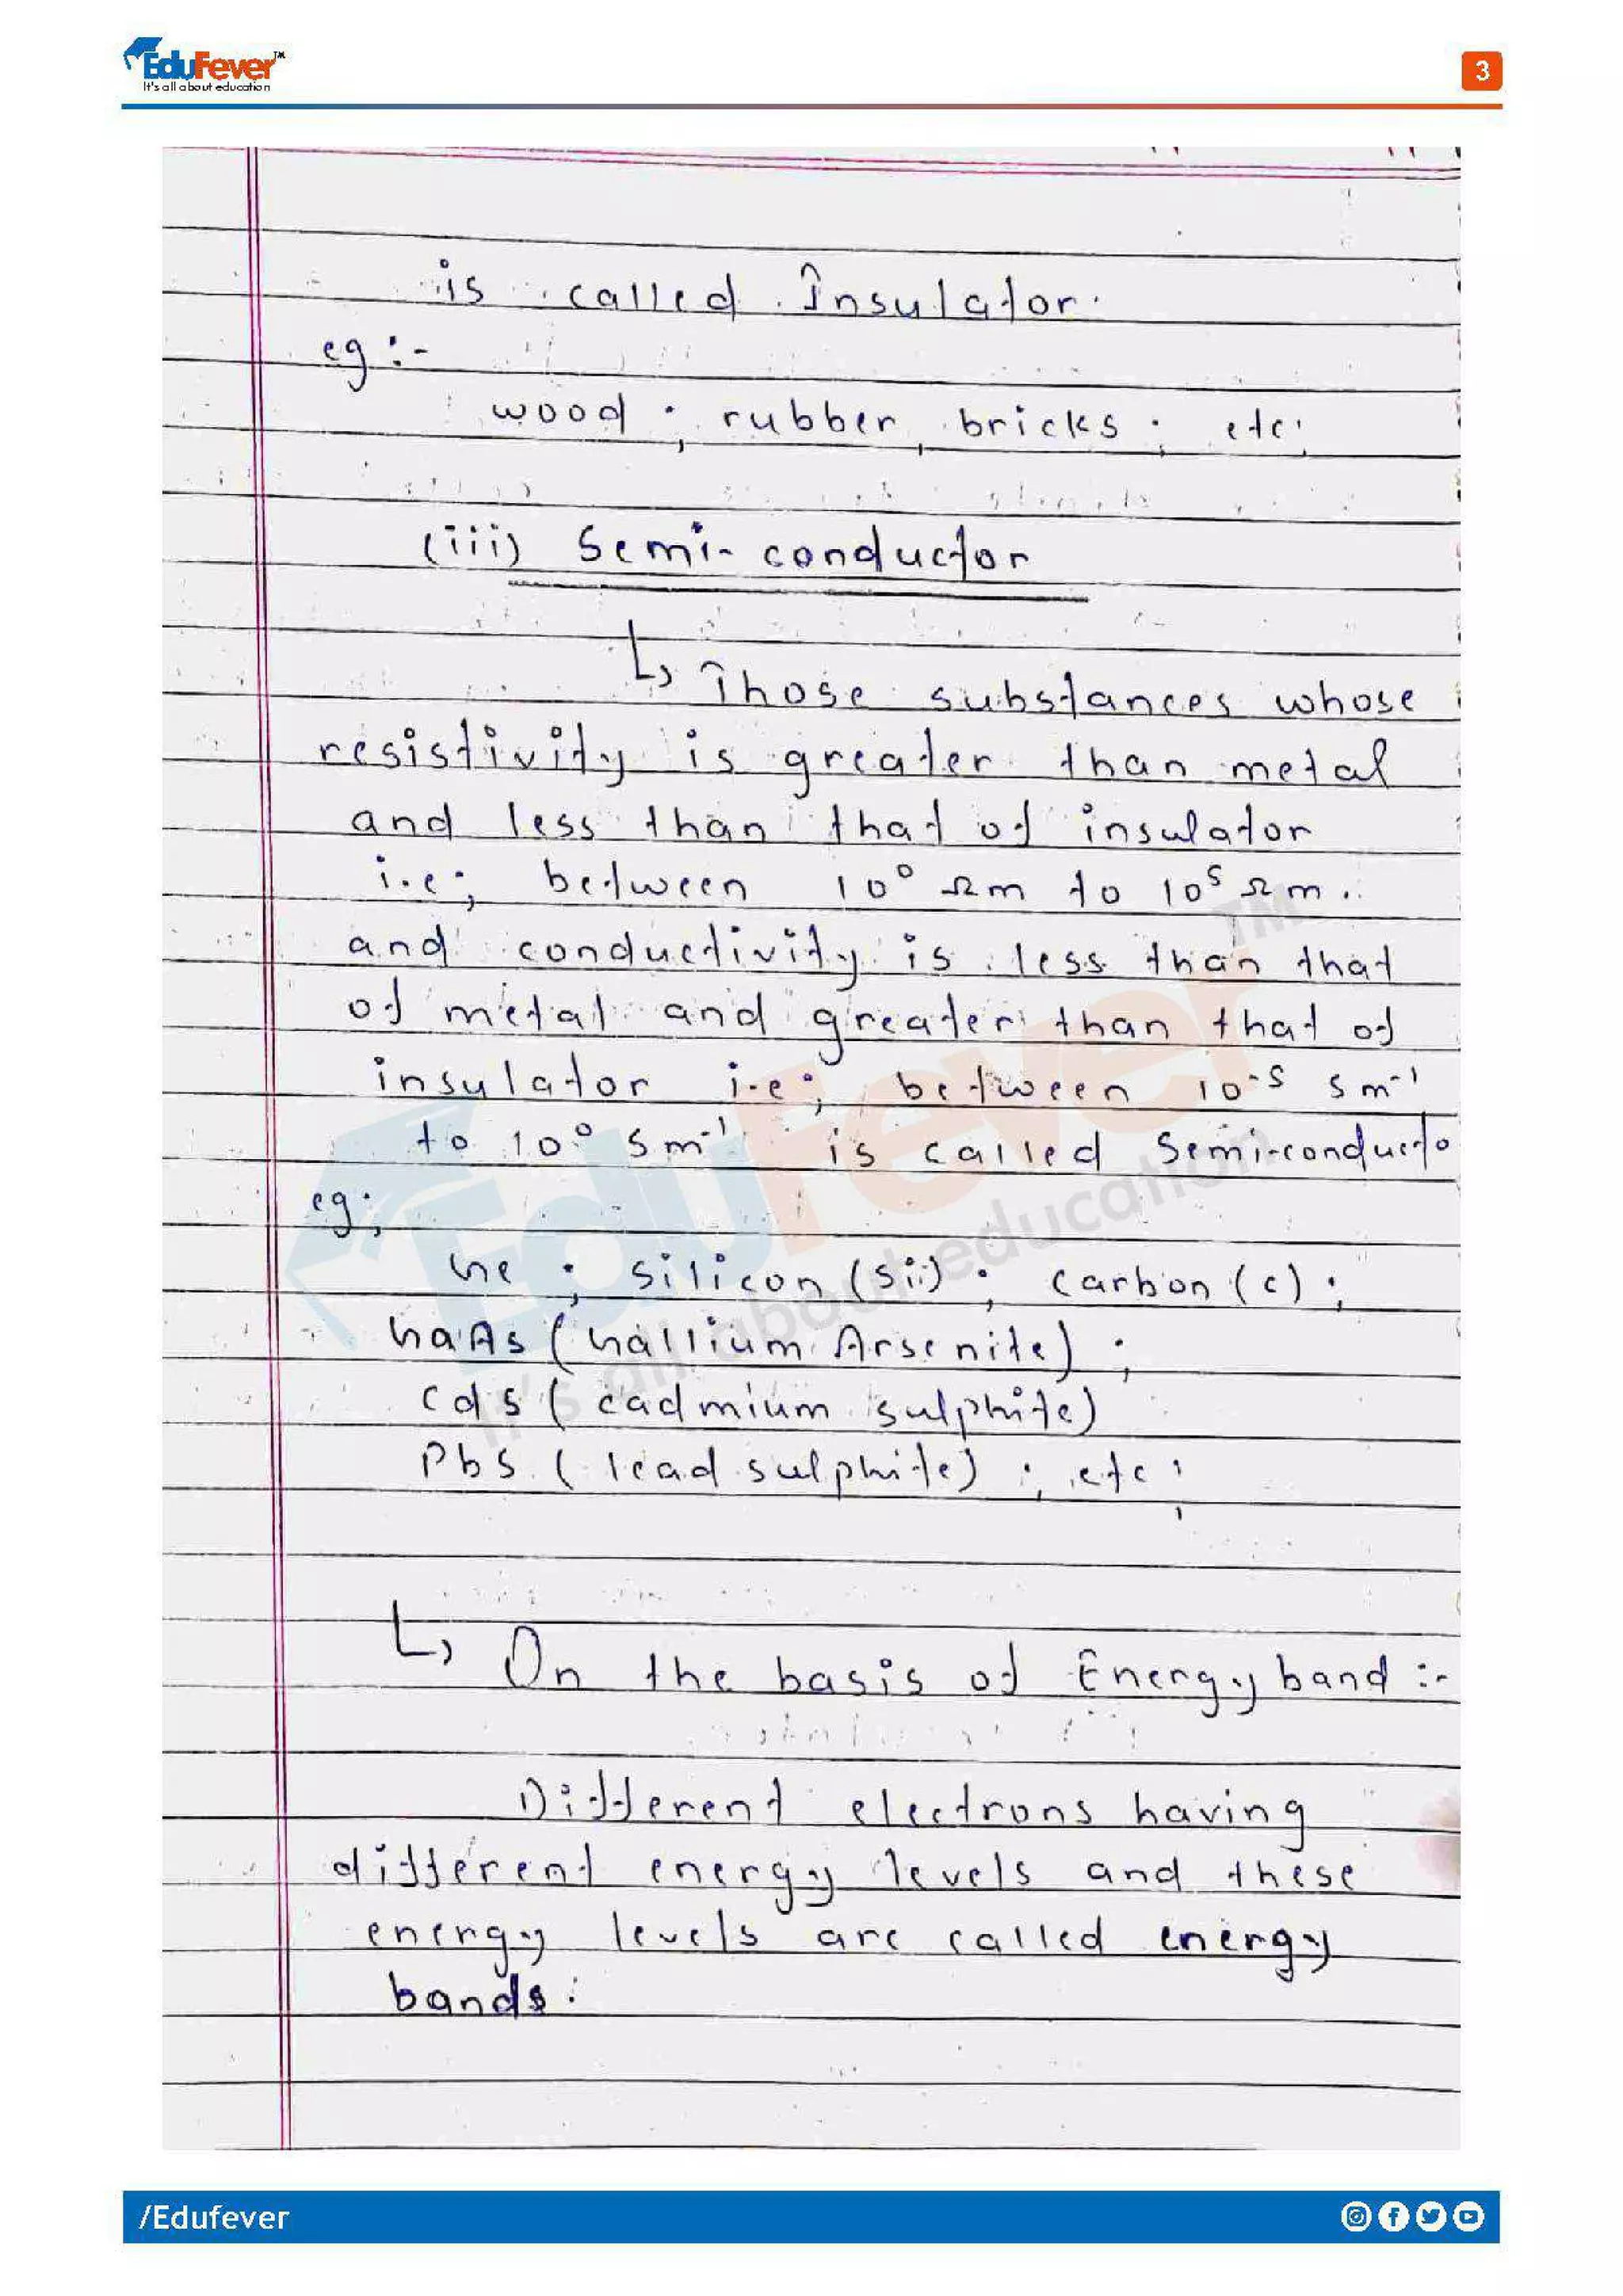 EduFever™
It's all about education
3
is called Insulator.
eg :-
wood ; rubber, bricks ; etc;
(iii) Semi-conductor
↳ Those substances whose
resistivity is greater than metal
and less than that of insulator
i.e; between 10⁰ Ωm to 10⁵ Ωm.
and conductivity is less than that
of metal and greater than that of
insulator i.e; between 10⁻⁵ Sm⁻¹
to 10⁰ Sm⁻¹ is called Semi-conducto
eg;
Ge ; silicon (Si) ; carbon (c) ;
GaAs (Gallium Arsenite) ;
Cds (cadmium sulphite)
Pbs (lead sulphite) ; etc;
↳ On the basis of Energy band :-
Different electrons having
different energy levels and these
energy levels are called energy
bands.
EduFever™
It's all about education
/Edufever